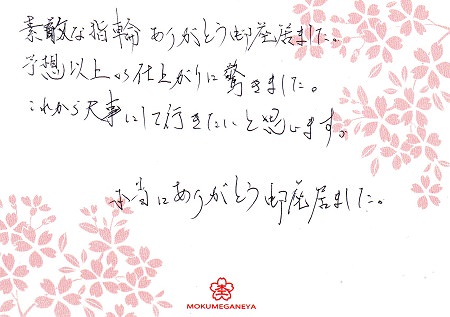 素敵な指輪ありがとう御座居ました。
予想以上の仕上がりに驚きました。
これから大事にして行きたいと思います。
本当にありがとう御座居ました。
MOKUMEGANEYA